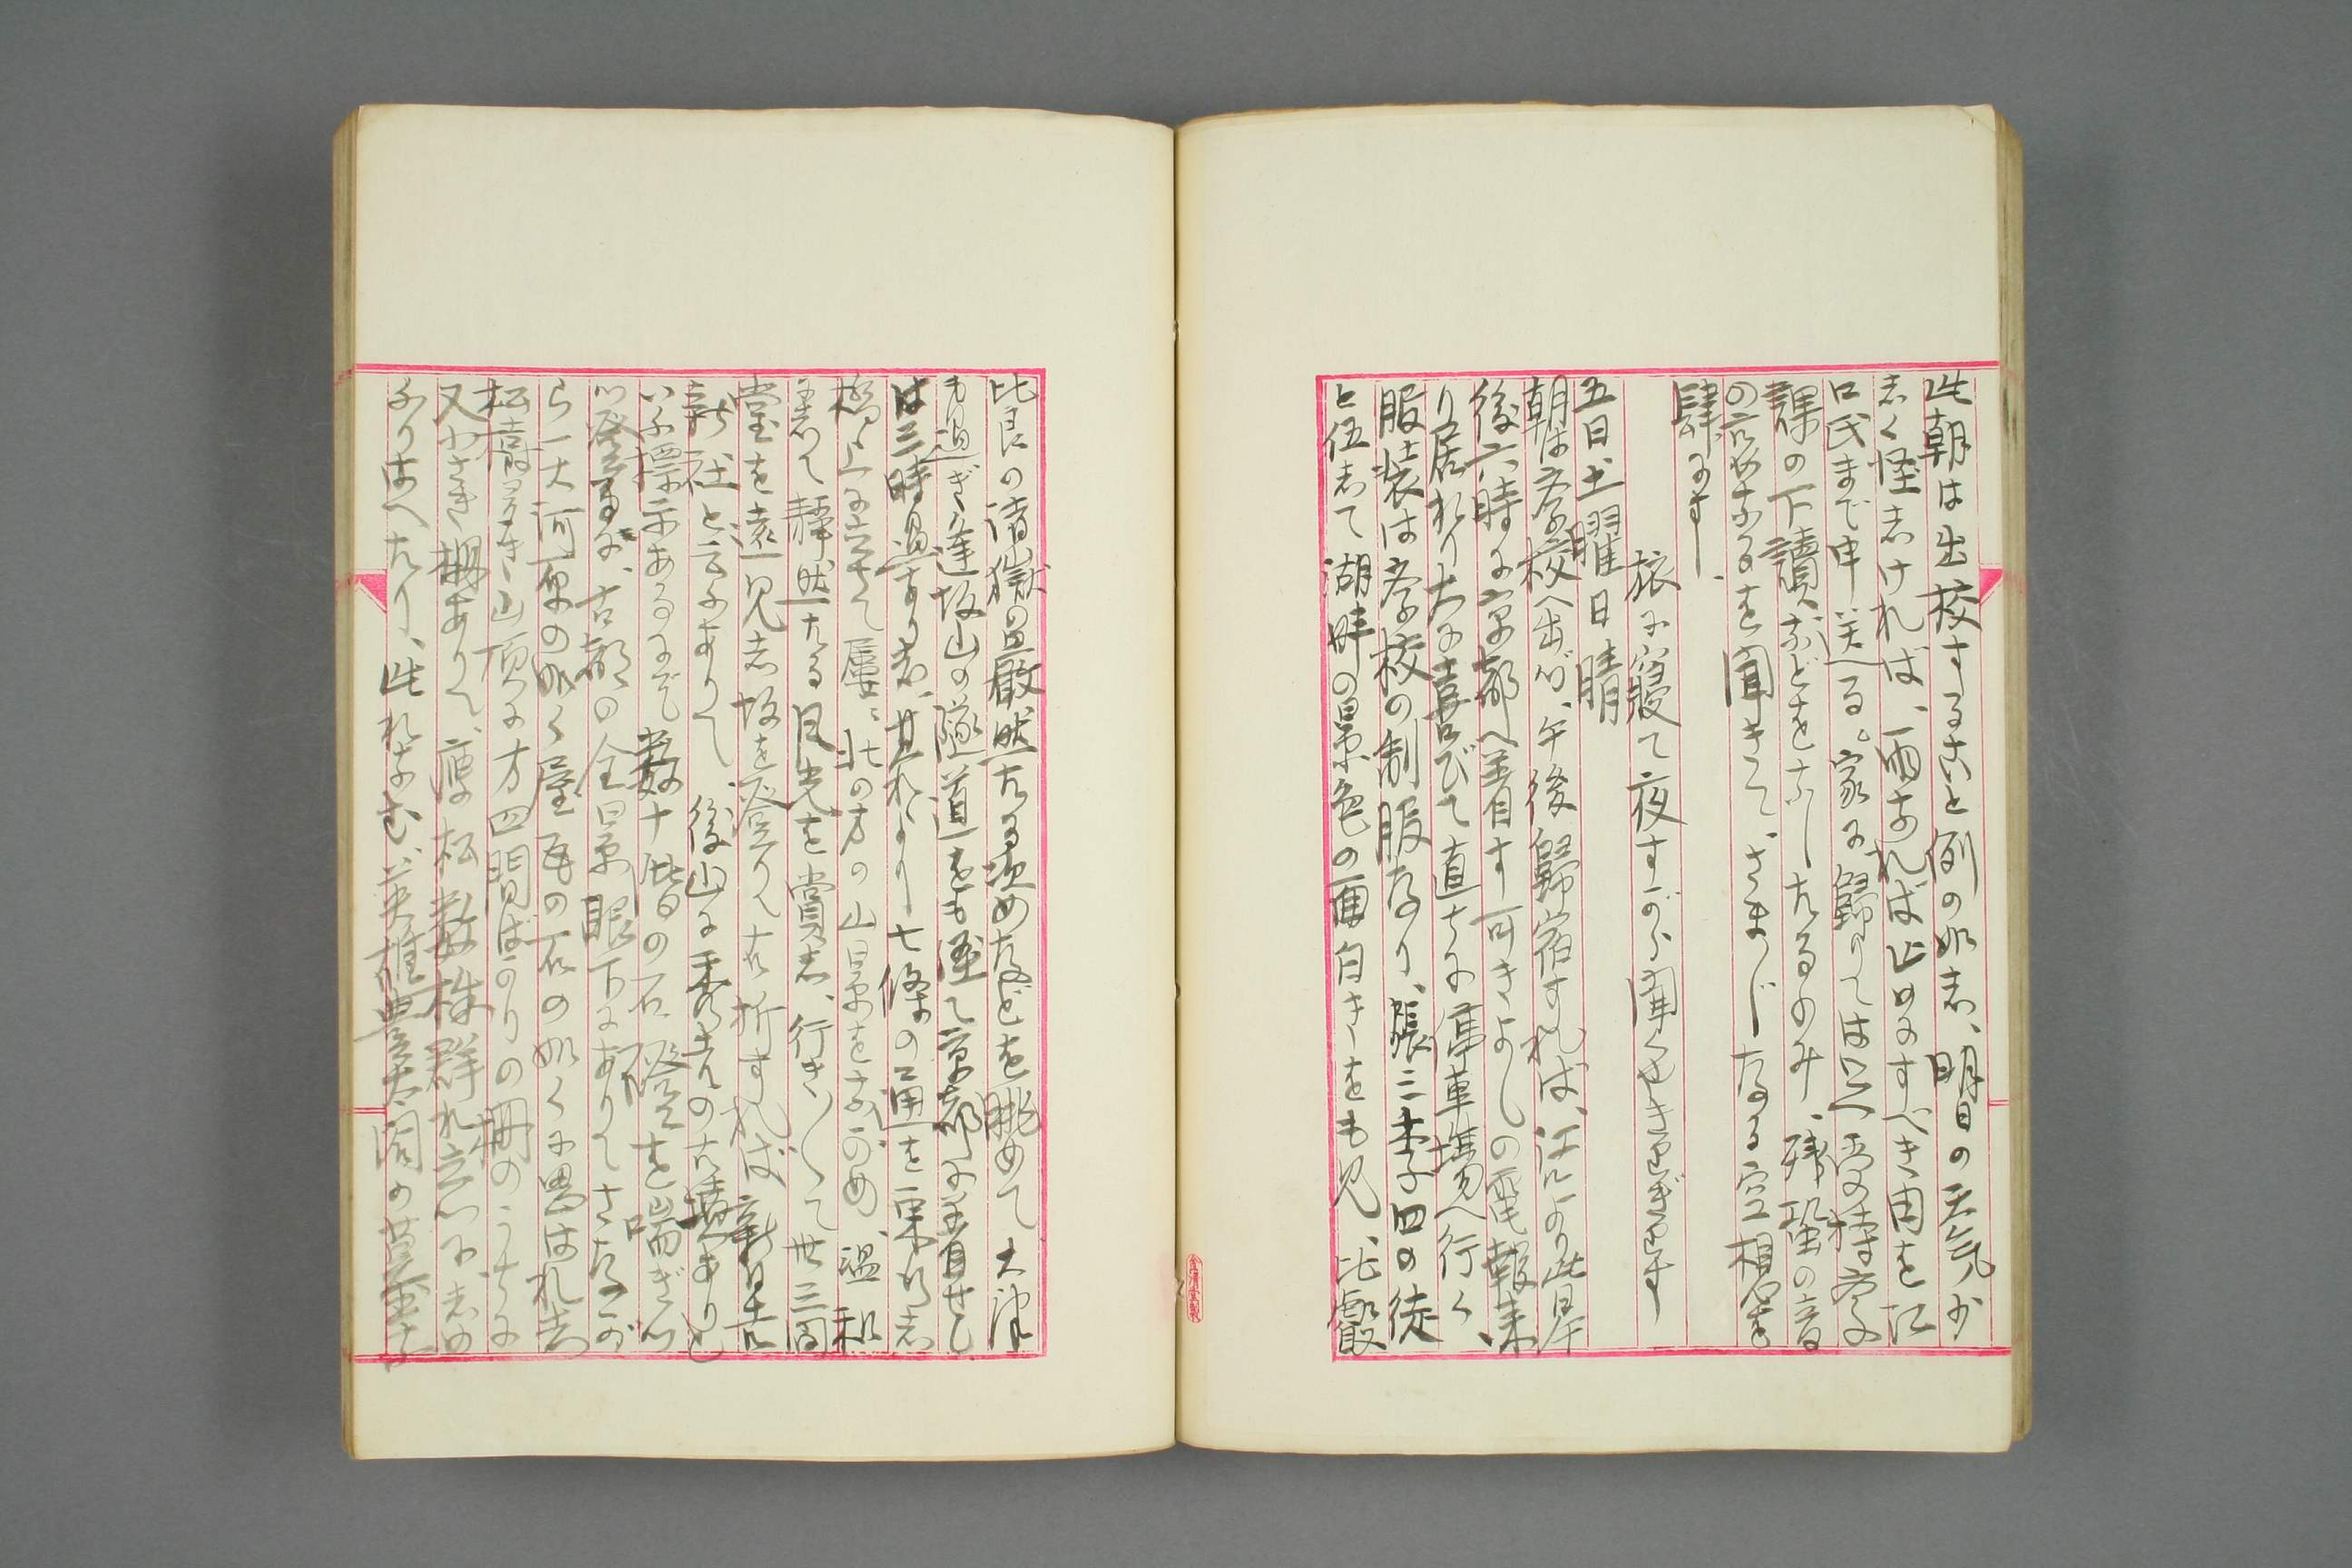 此朝は出校すること例の如し、明日の天気少
しく怪しければ、雨なれば止めにすべき由を江
口氏まで申送る。家に歸りては只へ受持学
課の下讀などをなしたるのみ、殘蛩の音
の云々なるを聞きて、さまじなる空想を
肆にす、
旅に寝て夜すがら聞くやきりぎりす
五日土曜日 晴
朝は学校へ出が、午後歸宿すれば、江氏より此日午
後六時に京都へ着す可きよしの電報来
り居れり大に喜びて直ちに停車場へ行く、
服装は学校の制服なり、張三李四の徒
と伍して湖畔の景色の面白きをも見、比叡
比良の諸嶽の皚然たる流めなどを眺めて、大津
も過ぎ逢坂山の隧道をも經て京都に着せし
は三時過なりし、其れより七條の通を東行し
橋上に立ちて屢々北の方の山景をながめ、温和
にして静然たる風光を賞し、行き〳〵て卅三間
堂を遠見し坂を登りて右折すれば新日吉
新社と云ふありて、後山に秀吉の古墳ありと
いふ標示あるにぞ數十階の石磴を喘ぎつ
つ登るに、古都の全景眼下にありてさなが
ら一大河原の如く屋瓦の石の如くに思はれし
松樹多き山頂に方四間ばかりの柵のうちに
又小さき柵ありて、瘦松數株群れ立つに、しめ
なりはへたり、此れなむ英雄豊太閤の墳墓な